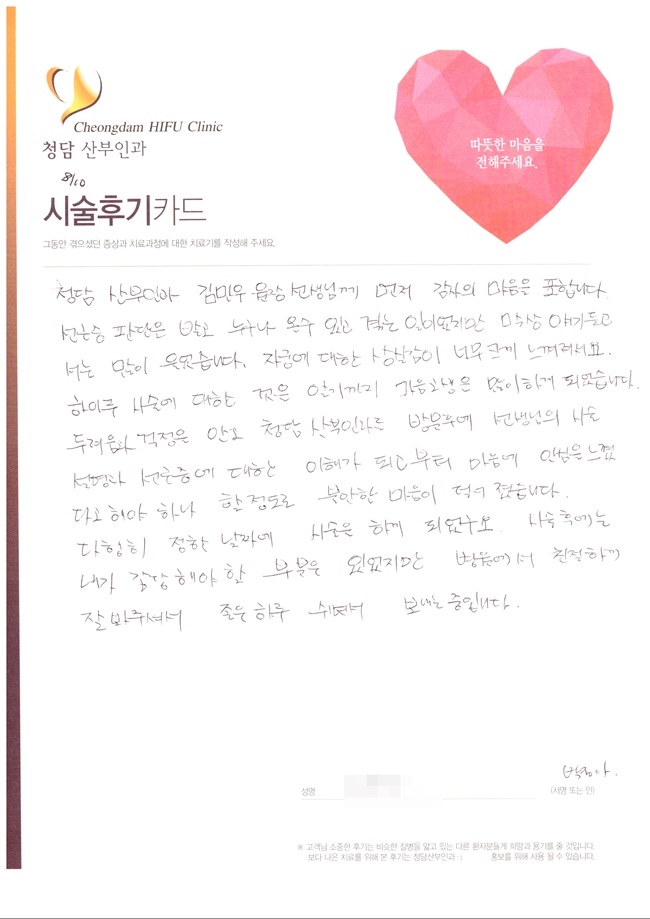 Cheongdam HIFU Clinic
청담 산부인과
8/10
시술후기카드
그동안 겪으셨던 증상과 치료과정에 대한 치료기를 작성해 주세요.
따뜻한 마음을
전해주세요.
청담 산부인과 김민우 원장선생님께 먼저 감사의 마음을 표합니다.
선근증 판단을 받고 누구나 올수 있고 겪는 일이었지만 막상 얘기듣고
너는 많이 울었습니다. 자궁에 대한 상실감이 너무 크게 느껴져서요.
하이푸 시술에 대한 것은 알기까지 마음고생은 많이하게 되었습니다.
두려움과 걱정을 안고 청담산부인과를 방문후에 선생님의 시술
설명과 선근증에 대한 이해가 되고부터 마음에 안심을 느꼈
다고 해야 하나 할정도로 불안한 마음이 적어 졌습니다.
다행히 정한 날짜에 시술은 하게 되었구요. 시술후에는
내가 감당해야 할 부분은 있었지만 병원에서 친절하게
잘 봐주셔서 좋은 하루 쉬면서 보내는 중입니다.
성명
(서명 또는 인)
※ 고객님 소중한 후기는 비슷한 질병을 앓고 있는 다른 환자분들게 희망과 용기를 줄 것입니다.
보다 나은 치료를 위해 본 후기는 청담산부인과 홍보를 위해 사용 될 수 있습니다.